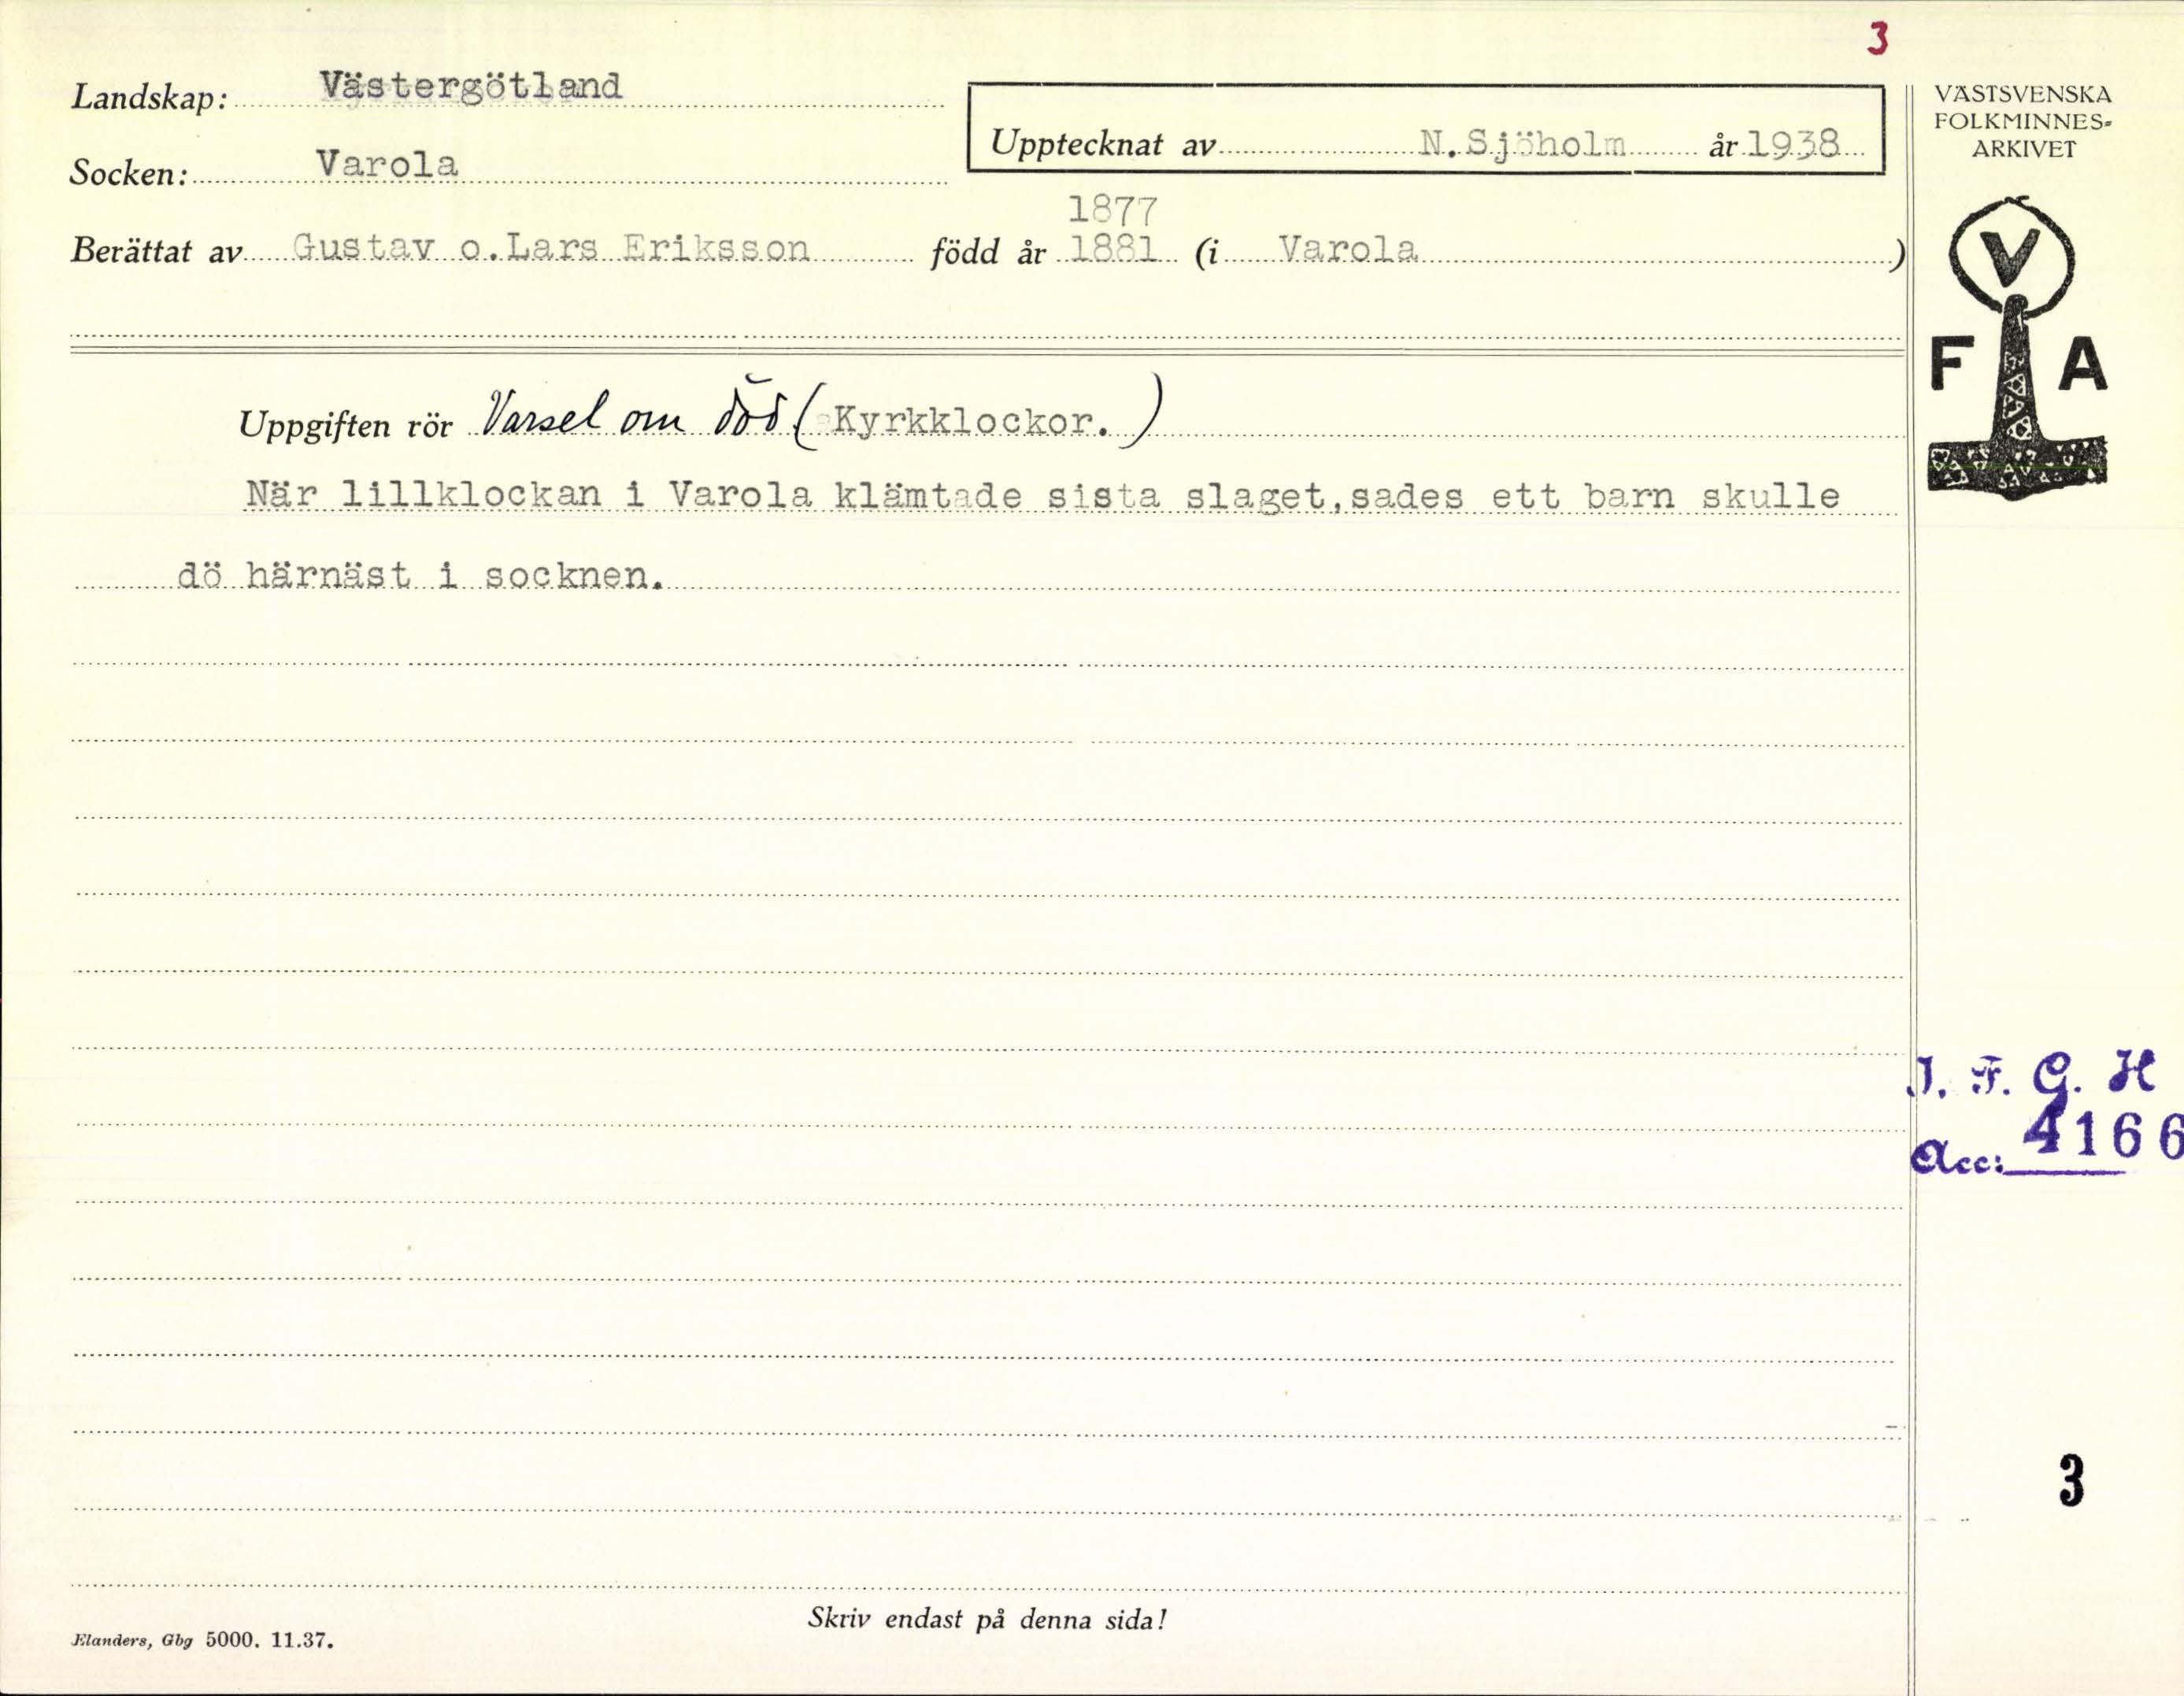 3
Landskap: Västergötland
Socken: Varola
Upptecknat av N.Sjöholm år 1938
1877
Berättat av Gustav o.Lars Eriksson född år 1881 (i Varola )
VÄSTSVENSKA
FOLKMINNES-
ARKIVET
V
F A
Uppgiften rör Varsel om död (Kyrkklockor.)
När lillklockan i Varola klämtade sista slaget,sades ett barn skulle
dö härnäst i socknen.
I. F. G. H
Acc: 4166
3
Skriv endast på denna sida!
Elanders, Gbg 5000. 11.37.